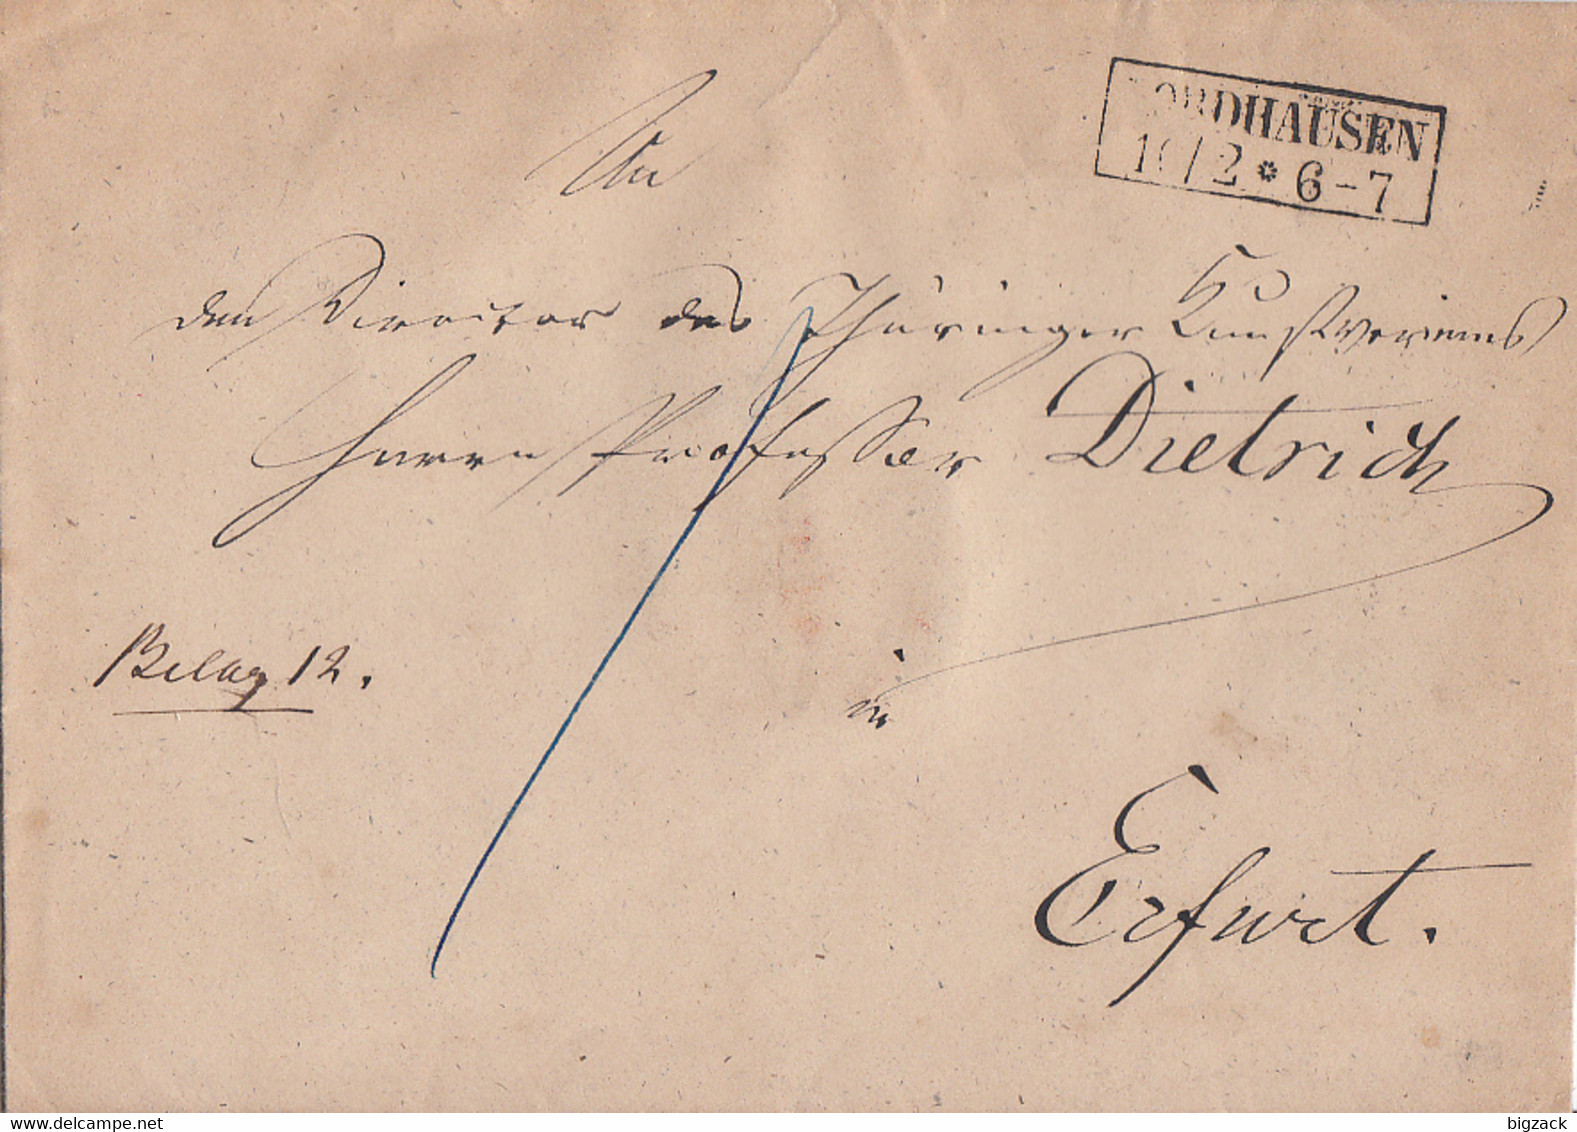 NORDHAUSEN
10/2 * 6-7
An
den Director des Thüringer Kunstvereins
Herrn Professor Dietrich
Belag 12.
in
Erfurt.
delcampe.net
bigzack